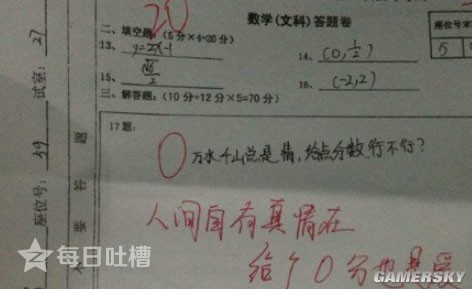 20
数学(文科)答题卷
座位号末
5
二、填空题:(5分×4=20分)
13、y=2x-1
14、(0,1/2)
15、
16、(-2,2)
三、解答题:(10分+12分×5=70分)
17题:
0
万水千山总是情,给点分数行不行?
人间自有真情在
给个0分也是爱
试室:27
座位号:59
要答题
每日吐槽
GAMERSKY